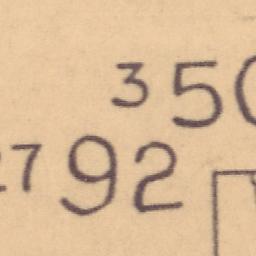 350
2792